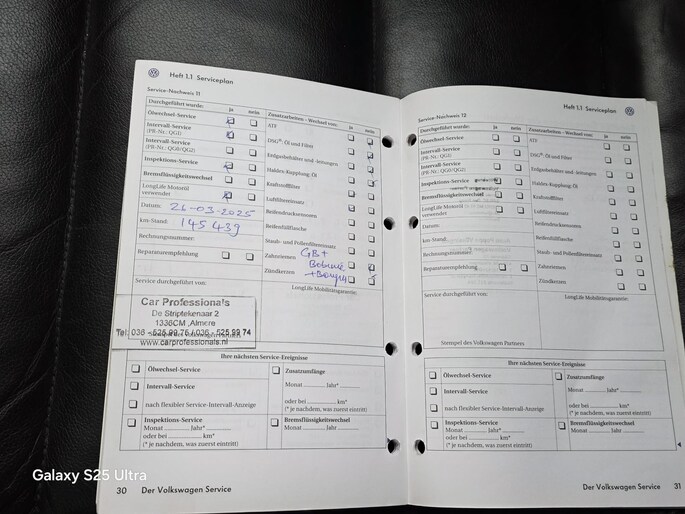 Heft 1.1 Serviceplan
Service-Nachweis 11
Durchgeführt wurde: ja nein
Ölwechsel-Service
Intervall-Service
(PR-Nr.: QG1)
Intervall-Service
(PR-Nr.: QG0/QG2)
Inspektions-Service
Bremsflüssigkeitswechsel
LongLife Motoröl
verwendet
Datum: 26-03-2025
km-Stand: 145439
Rechnungsnummer:
Reparaturempfehlung
Service durchgeführt von:
Zusatzarbeiten - Wechsel von: ja nein
ATF
DSG®: Öl und Filter
Erdgasbehälter und -leitungen
Haldex-Kupplung: Öl
Kraftstofffilter
Luftfiltereinsatz
Reifendruckssensoren
Reifenfüllflasche
Staub- und Pollenfiltereinsatz
Zahnriemen
Zündkerzen
GB+
LongLife Mobilitätsgarantie:
Car Professionals
De Striptekenaar 2
1336CM ,Almere
Tel: 036 - 525 99 75 / 036 - 525 99 74
www.carprofessionals.nl
Ihre nächsten Service-Ereignisse
Ölwechsel-Service
Intervall-Service
nach flexibler Service-Intervall-Anzeige
Inspektions-Service
Monat Jahr*
oder bei km*
(* je nachdem, was zuerst eintritt)
Zusatzumfänge
Monat Jahr*
oder bei km*
(* je nachdem, was zuerst eintritt)
Bremsflüssigkeitswechsel
Monat Jahr
30 Der Volkswagen Service
Heft 1.1 Serviceplan
Service-Nachweis 12
Durchgeführt wurde: ja nein
Ölwechsel-Service
Intervall-Service
(PR-Nr.: QG1)
Intervall-Service
(PR-Nr.: QG0/QG2)
Inspektions-Service
Bremsflüssigkeitswechsel
LongLife Motoröl
verwendet
Datum:
km-Stand:
Rechnungsnummer:
Reparaturempfehlung
Service durchgeführt von:
Zusatzarbeiten - Wechsel von: ja nein
ATF
DSG®: Öl und Filter
Erdgasbehälter und -leitungen
Haldex-Kupplung: Öl
Kraftstofffilter
Luftfiltereinsatz
Reifendruckssensoren
Reifenfüllflasche
Staub- und Pollenfiltereinsatz
Zahnriemen
Zündkerzen
LongLife Mobilitätsgarantie:
Stempel des Volkswagen Partners
Ihre nächsten Service-Ereignisse
Ölwechsel-Service
Intervall-Service
nach flexibler Service-Intervall-Anzeige
Inspektions-Service
Monat Jahr*
oder bei km*
(* je nachdem, was zuerst eintritt)
Zusatzumfänge
Monat Jahr*
oder bei km*
(* je nachdem, was zuerst eintritt)
Bremsflüssigkeitswechsel
Monat Jahr
Der Volkswagen Service 31
Galaxy S25 Ultra